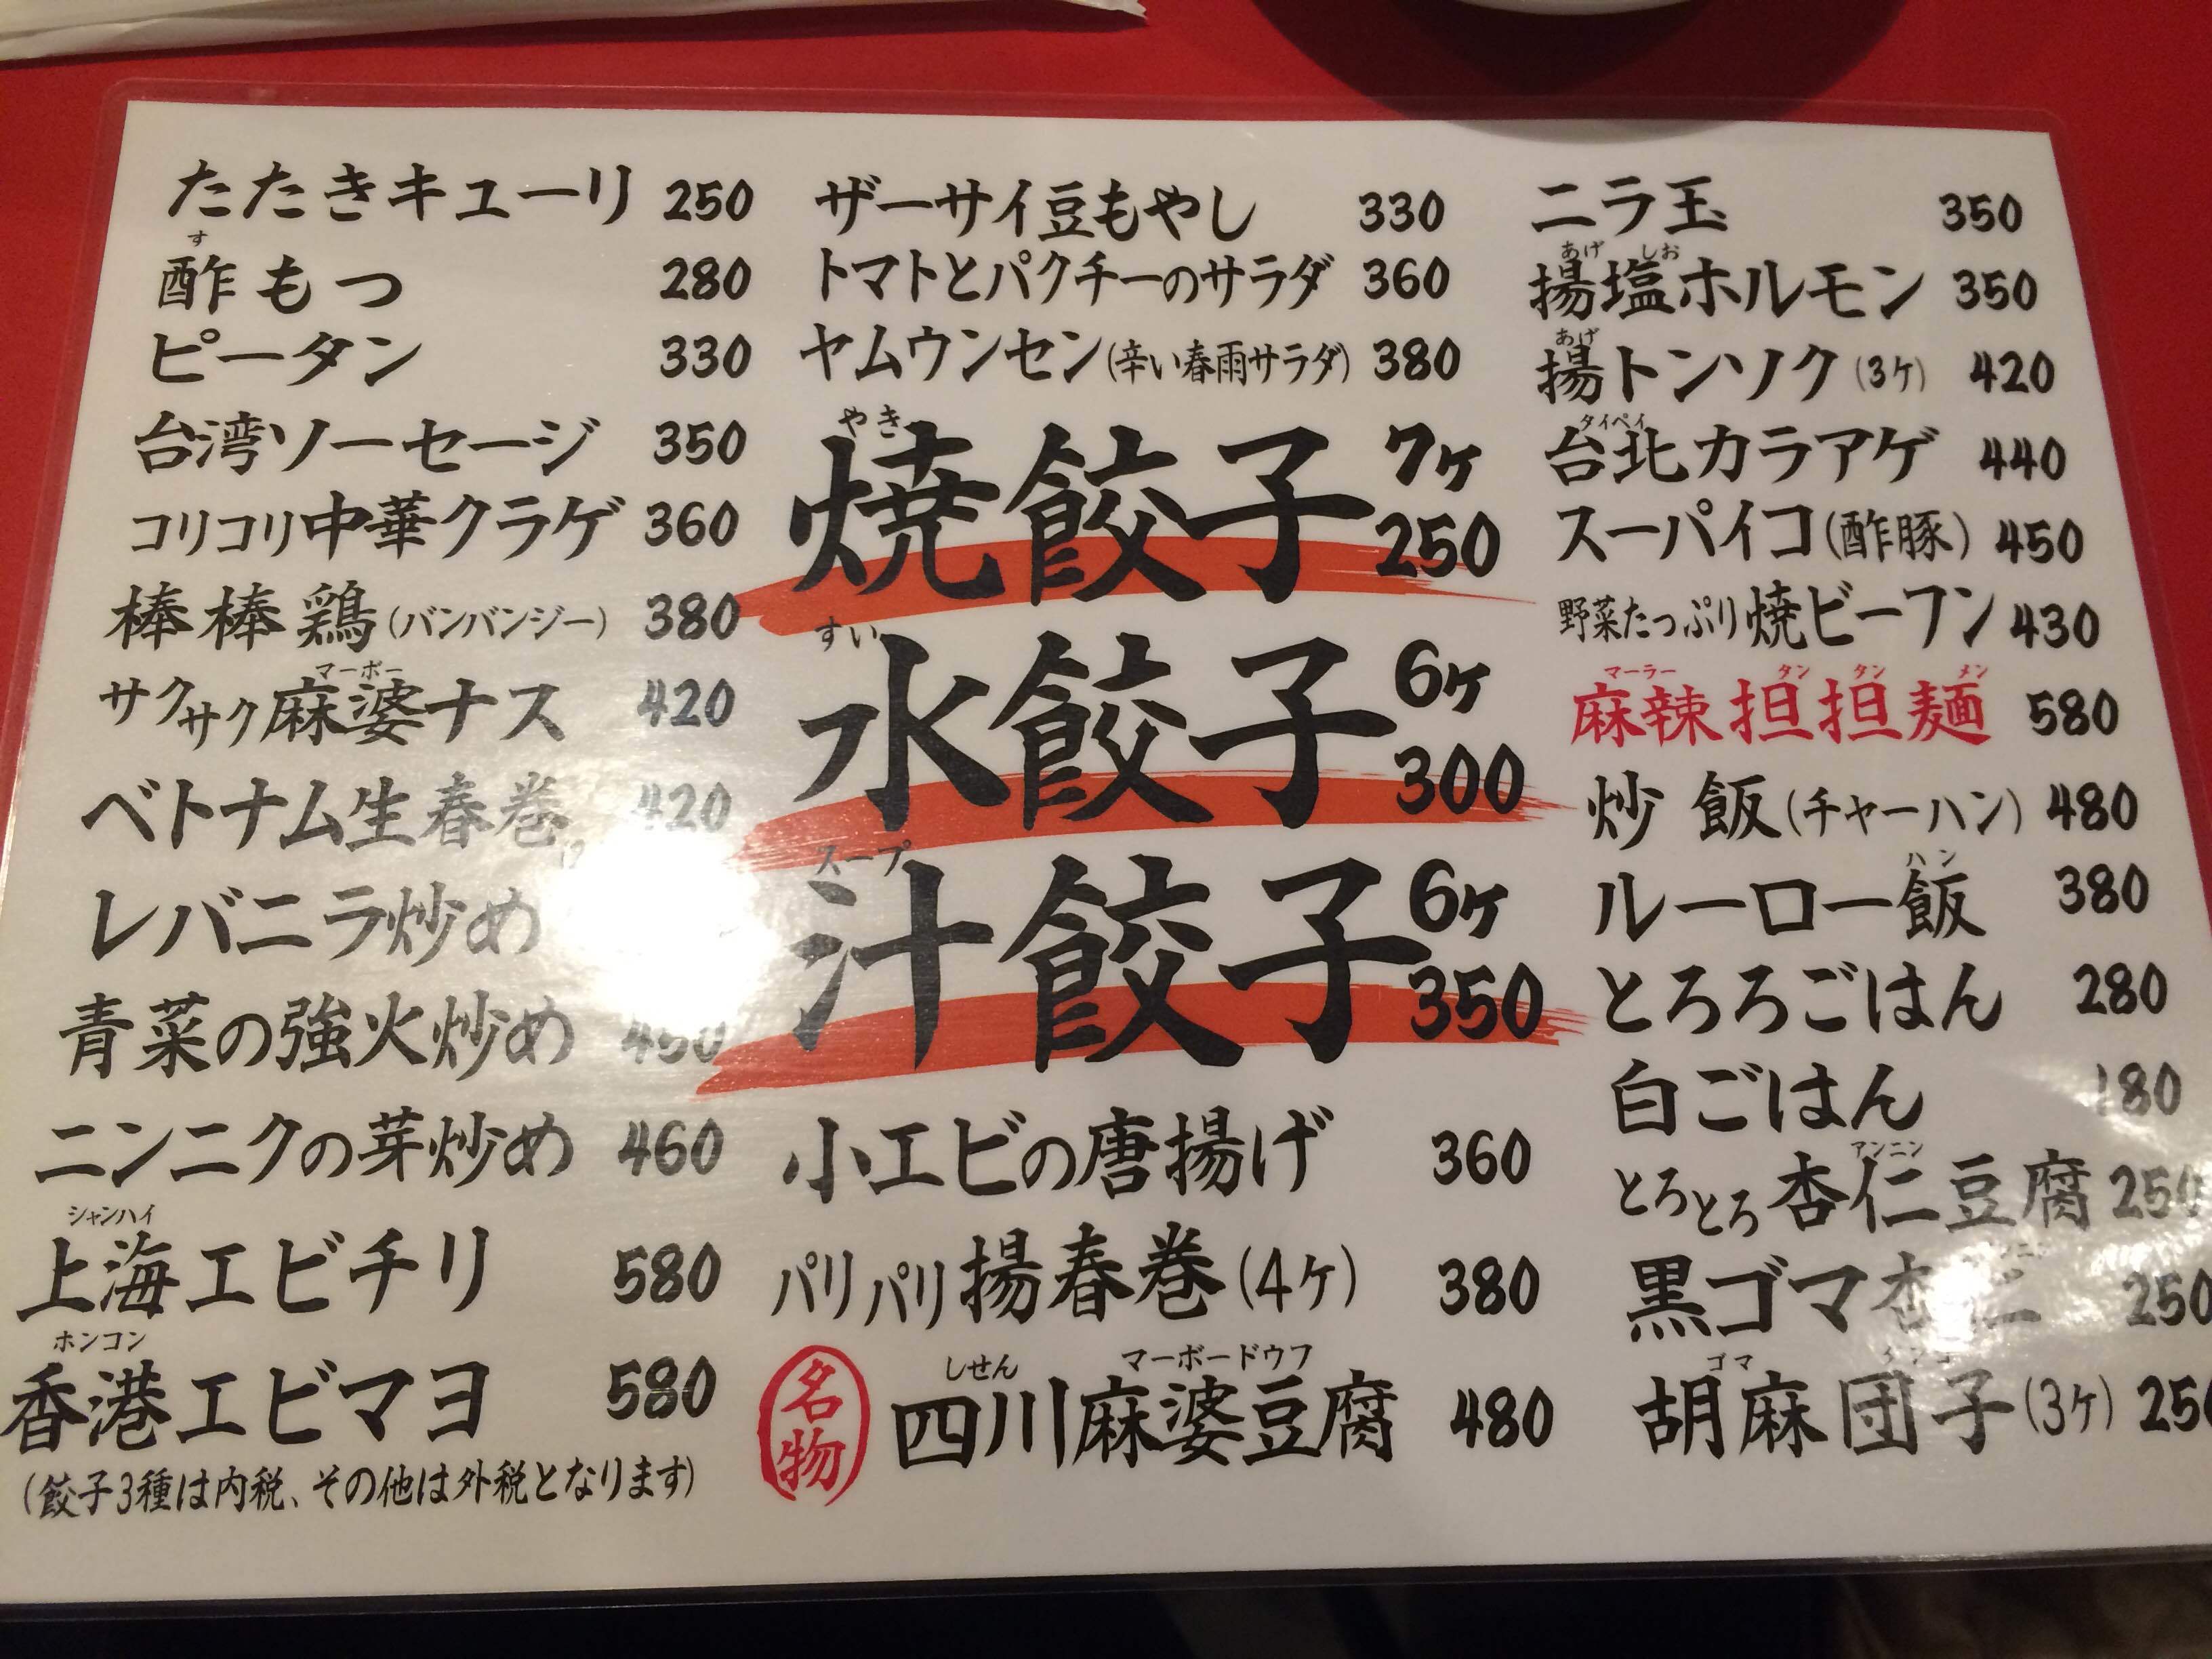 たたきキューリ 250
す
酢もつ 280
ピータン 330
台湾ソーセージ 350
コリコリ中華クラゲ 360
棒棒鶏(バンバンジー) 380
マーボー
サクサク麻婆ナス 420
ベトナム生春巻 420
レバニラ炒め
青菜の強火炒め 450
ニンニクの芽炒め 460
シャンハイ
上海エビチリ 580
ホンコン
香港エビマヨ 580
(餃子3種は内税、その他は外税となります)
ザーサイ豆もやし 330
トマトとパクチーのサラダ 360
ヤムウンセン(辛い春雨サラダ) 380
やき
焼餃子 7ヶ 250
すい
水餃子 6ヶ 300
スープ
汁餃子 6ヶ 350
小エビの唐揚げ 360
パリパリ揚春巻(4ヶ) 380
しせん マーボードウフ
名物 四川麻婆豆腐 480
ニラ玉 350
あげ しお
揚塩ホルモン 350
あげ
揚トンソク(3ヶ) 420
タイペイ
台北カラアゲ 440
スーパイコ(酢豚) 450
野菜たっぷり焼ビーフン 430
マーラー タン タン メン
麻辣担担麺 580
炒飯(チャーハン) 480
ハン
ルーロー飯 380
とろろごはん 280
白ごはん 180
アンニン
とろとろ杏仁豆腐 250
黒ゴマ杏仁 250
ゴマ
胡麻団子(3ヶ) 250